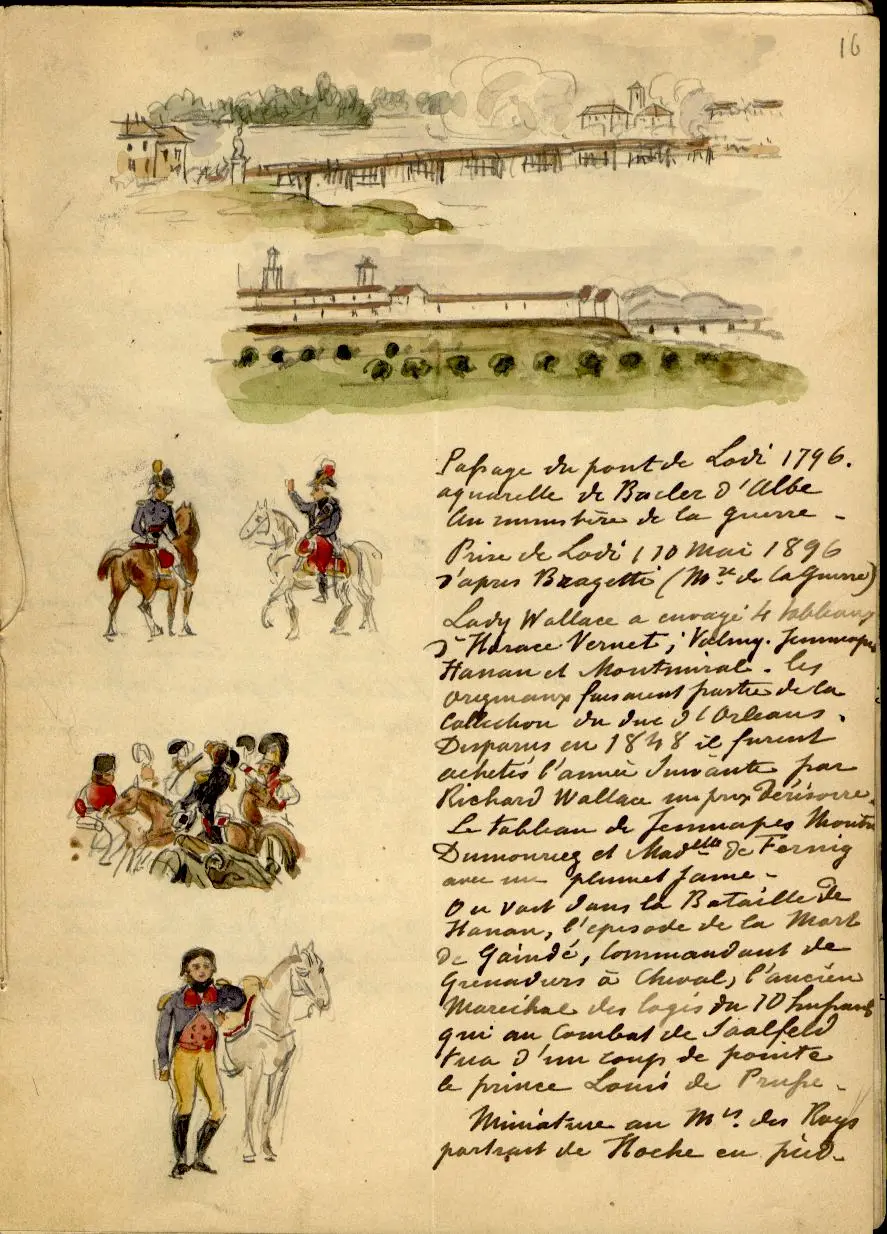 16
Passage du pont de Lodi 1796.
aquarelle de Bacler d'Albe
Au ministère de la guerre -
Prise de Lodi 10 Mai 1896
d'après Bagetti (Mre de la Guerre)
Lady Wallace a envoyé 4 tableaux
d'Horace Vernet; Valmy. Jemmapes
Hanau et Montmirail. les
originaux faisaient partie de la
Collection du duc d'Orleans.
Disparus en 1848 il furent
achetés l'année suivante par
Richard Wallace un prix dérisoire.
Le tableau de Jemmapes Montre
Dumouriez et Madelle de Fernig
avec un plumet jaune -
On voit dans la Bataille de
Hanau, l'episode de la Mort
de Gaindé, Commandant de
Grenadiers à Cheval, l'ancien
Marechal des logis du 10 hussards
qui au Combat de Saalfeld
tua d'un coup de pointe
le prince Louis de Prusse -
Miniature au Mis. des Roys
portrait de Hoche en pied -